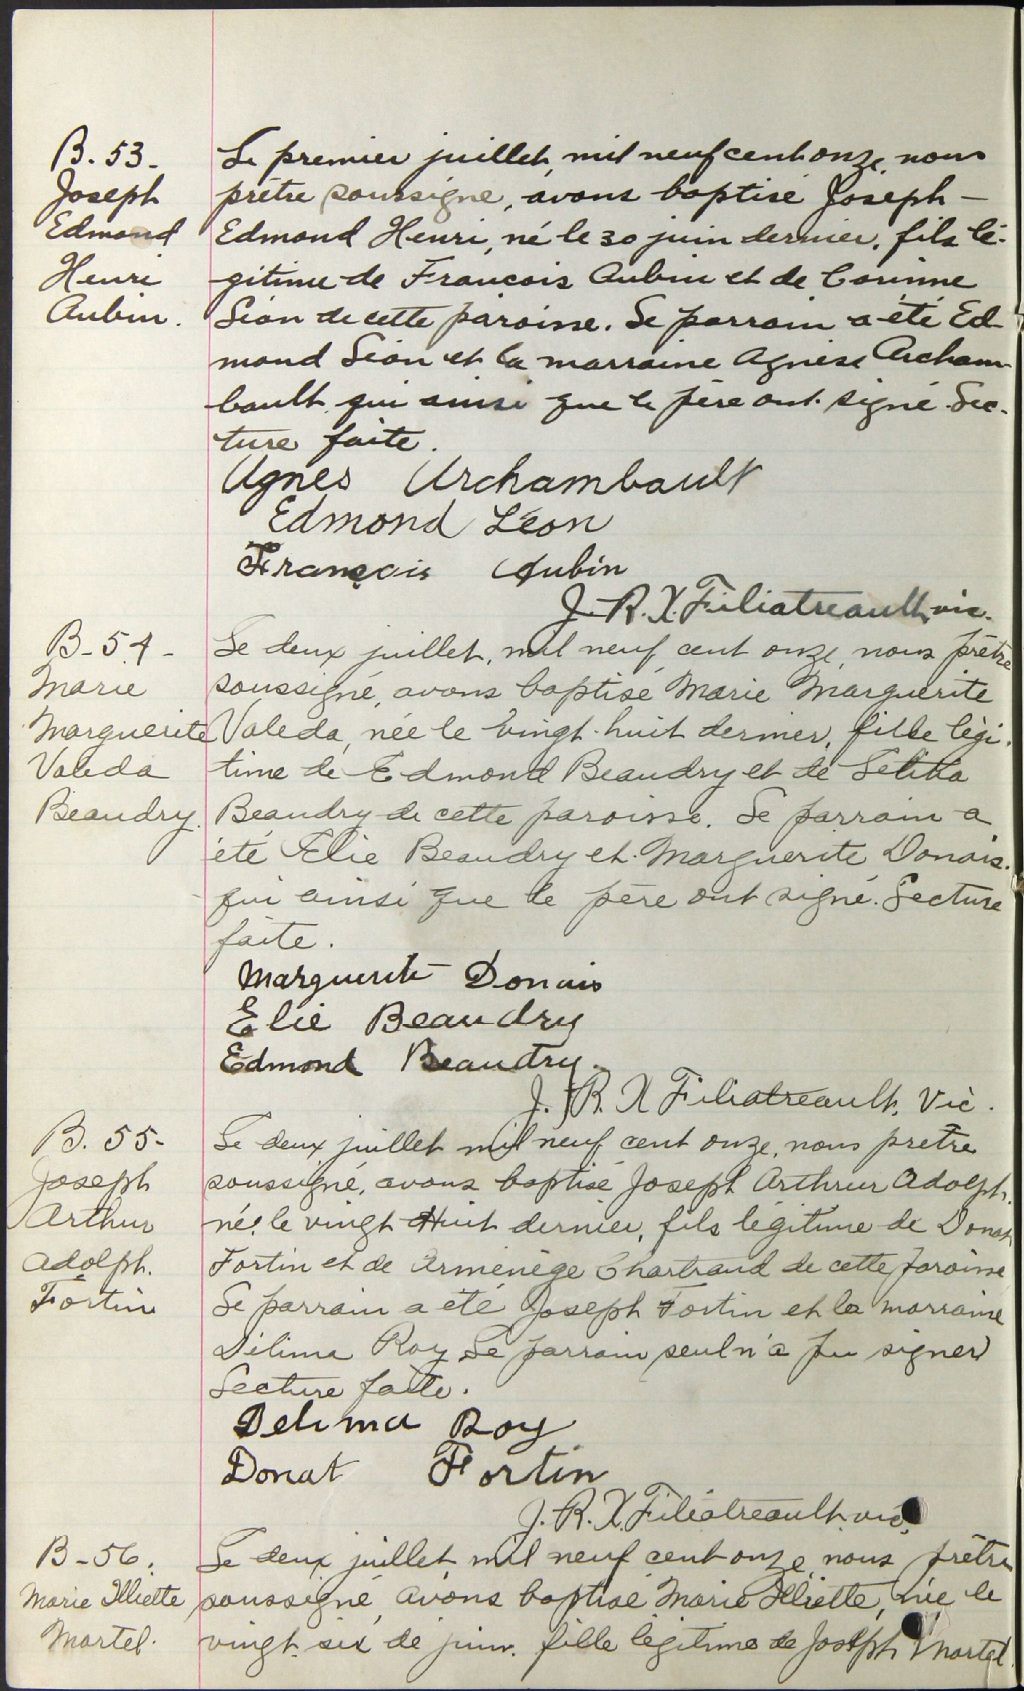 B. 53-
Joseph
Edmond
Henri
Aubin.
Le premier juillet, mil neuf cent onze, nous
prêtre soussigné, avons baptisé Joseph -
Edmond Henri, né le 30 juin dernier, fils lé-
gitime de Francois Aubin et de Corinne
Léon de cette paroisse. Le parrain a été Ed-
mond Léon et la marraine Agnèse Archam-
bault qui ainsi que le père ont signé. Lec-
ture faite.
Agnes Archambault
Edmond Léon
François Aubin
J. R. X. Filiatreault, vic.
B-54-
Marie
Marguerite
Valeda
Beaudry.
Le deux juillet, mil neuf cent onze, nous prêtre
soussigné, avons baptisé Marie Marguerite
Valeda, née le vingt-huit dernier, fille légi-
time de Edmond Beaudry et de
Beaudry de cette paroisse. Le parrain a
été Elie Beaudry et Marguerite Donais.
qui ainsi que le père ont signé. Lecture
faite.
Marguerite Donais
Elie Beaudry
Edmond Beaudry.
J. R. X Filiatreault, Vic.
B. 55-
Joseph
Arthur
Adolph.
Fortin
Le deux juillet mil neuf cent onze, nous prêtre
soussigné, avons baptisé Joseph Arthur Adolph.
né le vingt Huit dernier, fils légitime de Donat
Fortin et de Arménège Chartrand de cette paroisse
Le parrain a été Joseph Fortin et la marraine
Délima Roy Le parrain seul n'a pu signer
Lecture faite.
Delima Roy
Donat Fortin
J. R. X. Filiatreault, vic.
B-56.
Marie Illiette
Martel.
Le deux juillet, mil neuf cent onze, nous prêtre
soussigné, avons baptisé Marie Illiette, née le
vingt-six de juin, fille légitime de Joseph Martel.